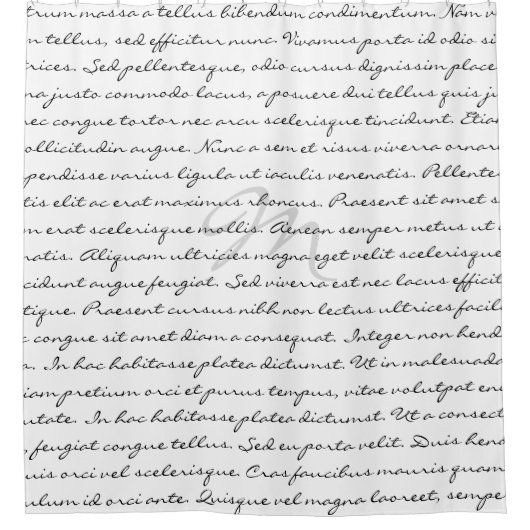 trum massa a tellus bibendum condimentum. Nam v
n tellus, sed efficitur nunc. Vivamus porta id odio si
trices. Sed pellentesque, odio cursus dignissim place
na justo commodo lacus, a posuere dui tellus quis ju
ec congue tortor nec arcu scelerisque tincidunt. Etian
ollicitudin augue. Nunc a sem et risus viverra ornar
pendisse varius ligula ut iaculis venenatis. Pellente
tis elit ac erat maximus rhoncus. Praesent sit amet s
m erat scelerisque mollis. Aenean semper metus ut u
natis. Aliquam ultricies magna eget velit scelerisque
cidunt augue feugiat. Sed viverra est nec lacus efficit
tique. Praesent cursus nibh non lectus ultrices facil
congue sit amet diam a consequat. Integer non hend
a. In hac habitasse platea dictumst. Ut in malesuada
iam pretium orci et purus tempus, vitae volutpat en
utate. In hac habitasse platea dictumst. Ut a consect
, feugiat congue tellus. Sed eu porta velit. Duis hend
uis orci vel scelerisque. Cras faucibus mauris quam
ulum id orci ante. Quisque vel magna laoreet, sempe
M